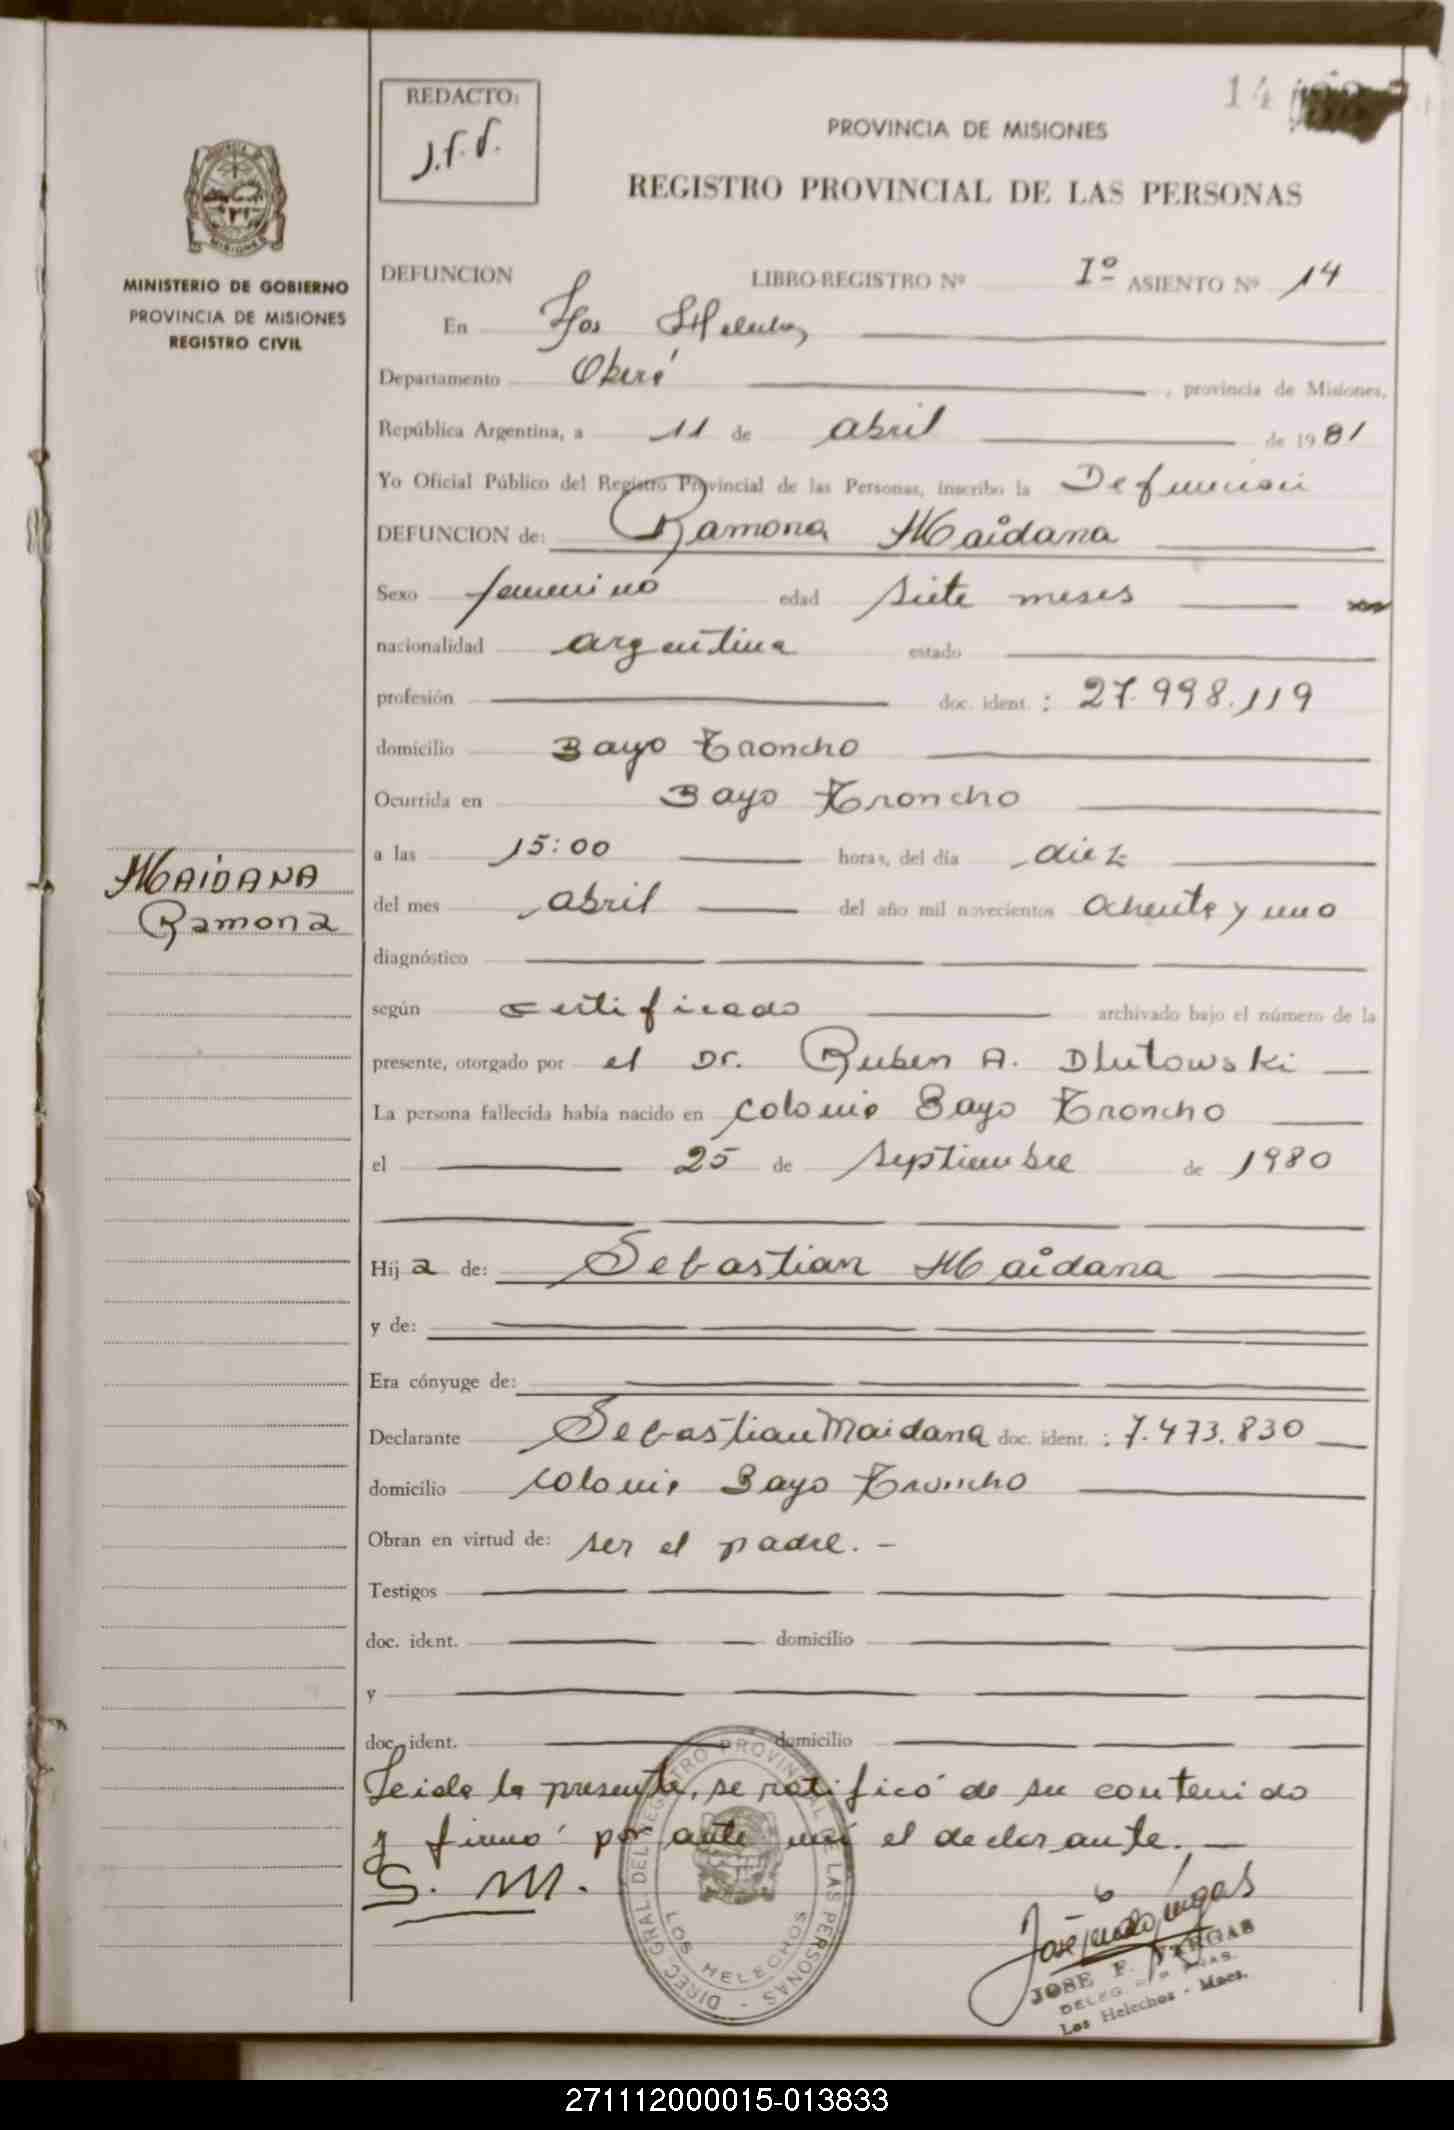 14
REDACTO:
J.F.V.
PROVINCIA DE MISIONES
REGISTRO PROVINCIAL DE LAS PERSONAS
MINISTERIO DE GOBIERNO
PROVINCIA DE MISIONES
REGISTRO CIVIL
DEFUNCION LIBRO-REGISTRO Nº Iº ASIENTO Nº 14
En Los Helechos
Departamento Oberá, provincia de Misiones,
República Argentina, a 11 de abril de 1981
Yo Oficial Público del Registro Provincial de las Personas, inscribo la Defunción
DEFUNCION de: Ramona Maidana
Sexo femenino edad siete meses
nacionalidad argentina estado
profesión doc. ident. : 27.998.119
domicilio Bayo Troncho
Ocurrida en Bayo Troncho
a las 15:00 horas, del día diez
MAIDANA
Ramona
del mes abril del año mil novecientos ochenta y uno
diagnóstico
según certificado archivado bajo el número de la
presente, otorgado por el Dr. Ruben A. Dlutowski
La persona fallecida había nacido en colonia Bayo Troncho
el 25 de septiembre de 1980
Hija de: Sebastian Maidana
y de:
Era cónyuge de:
Declarante Sebastian Maidana doc. ident. : 7.473.830
domicilio colonia Bayo Troncho
Obran en virtud de: ser el padre. -
Testigos
doc. ident. domicilio
y
doc. ident. domicilio
Leida la presente, se ratificó de su contenido
y firmó por ante mí el declarante. -
S. M.
DIREC. GRAL. DEL REGISTRO PROVINCIAL DE LAS PERSONAS -
LOS HELECHOS
JOSE F. VARGAS
Los Helechos - Mnes.
271112000015-013833